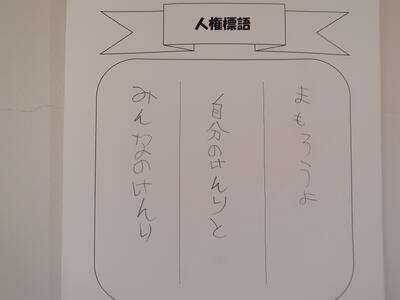 人権標語
まもろうよ
自分のけんりと
みんなのけんり